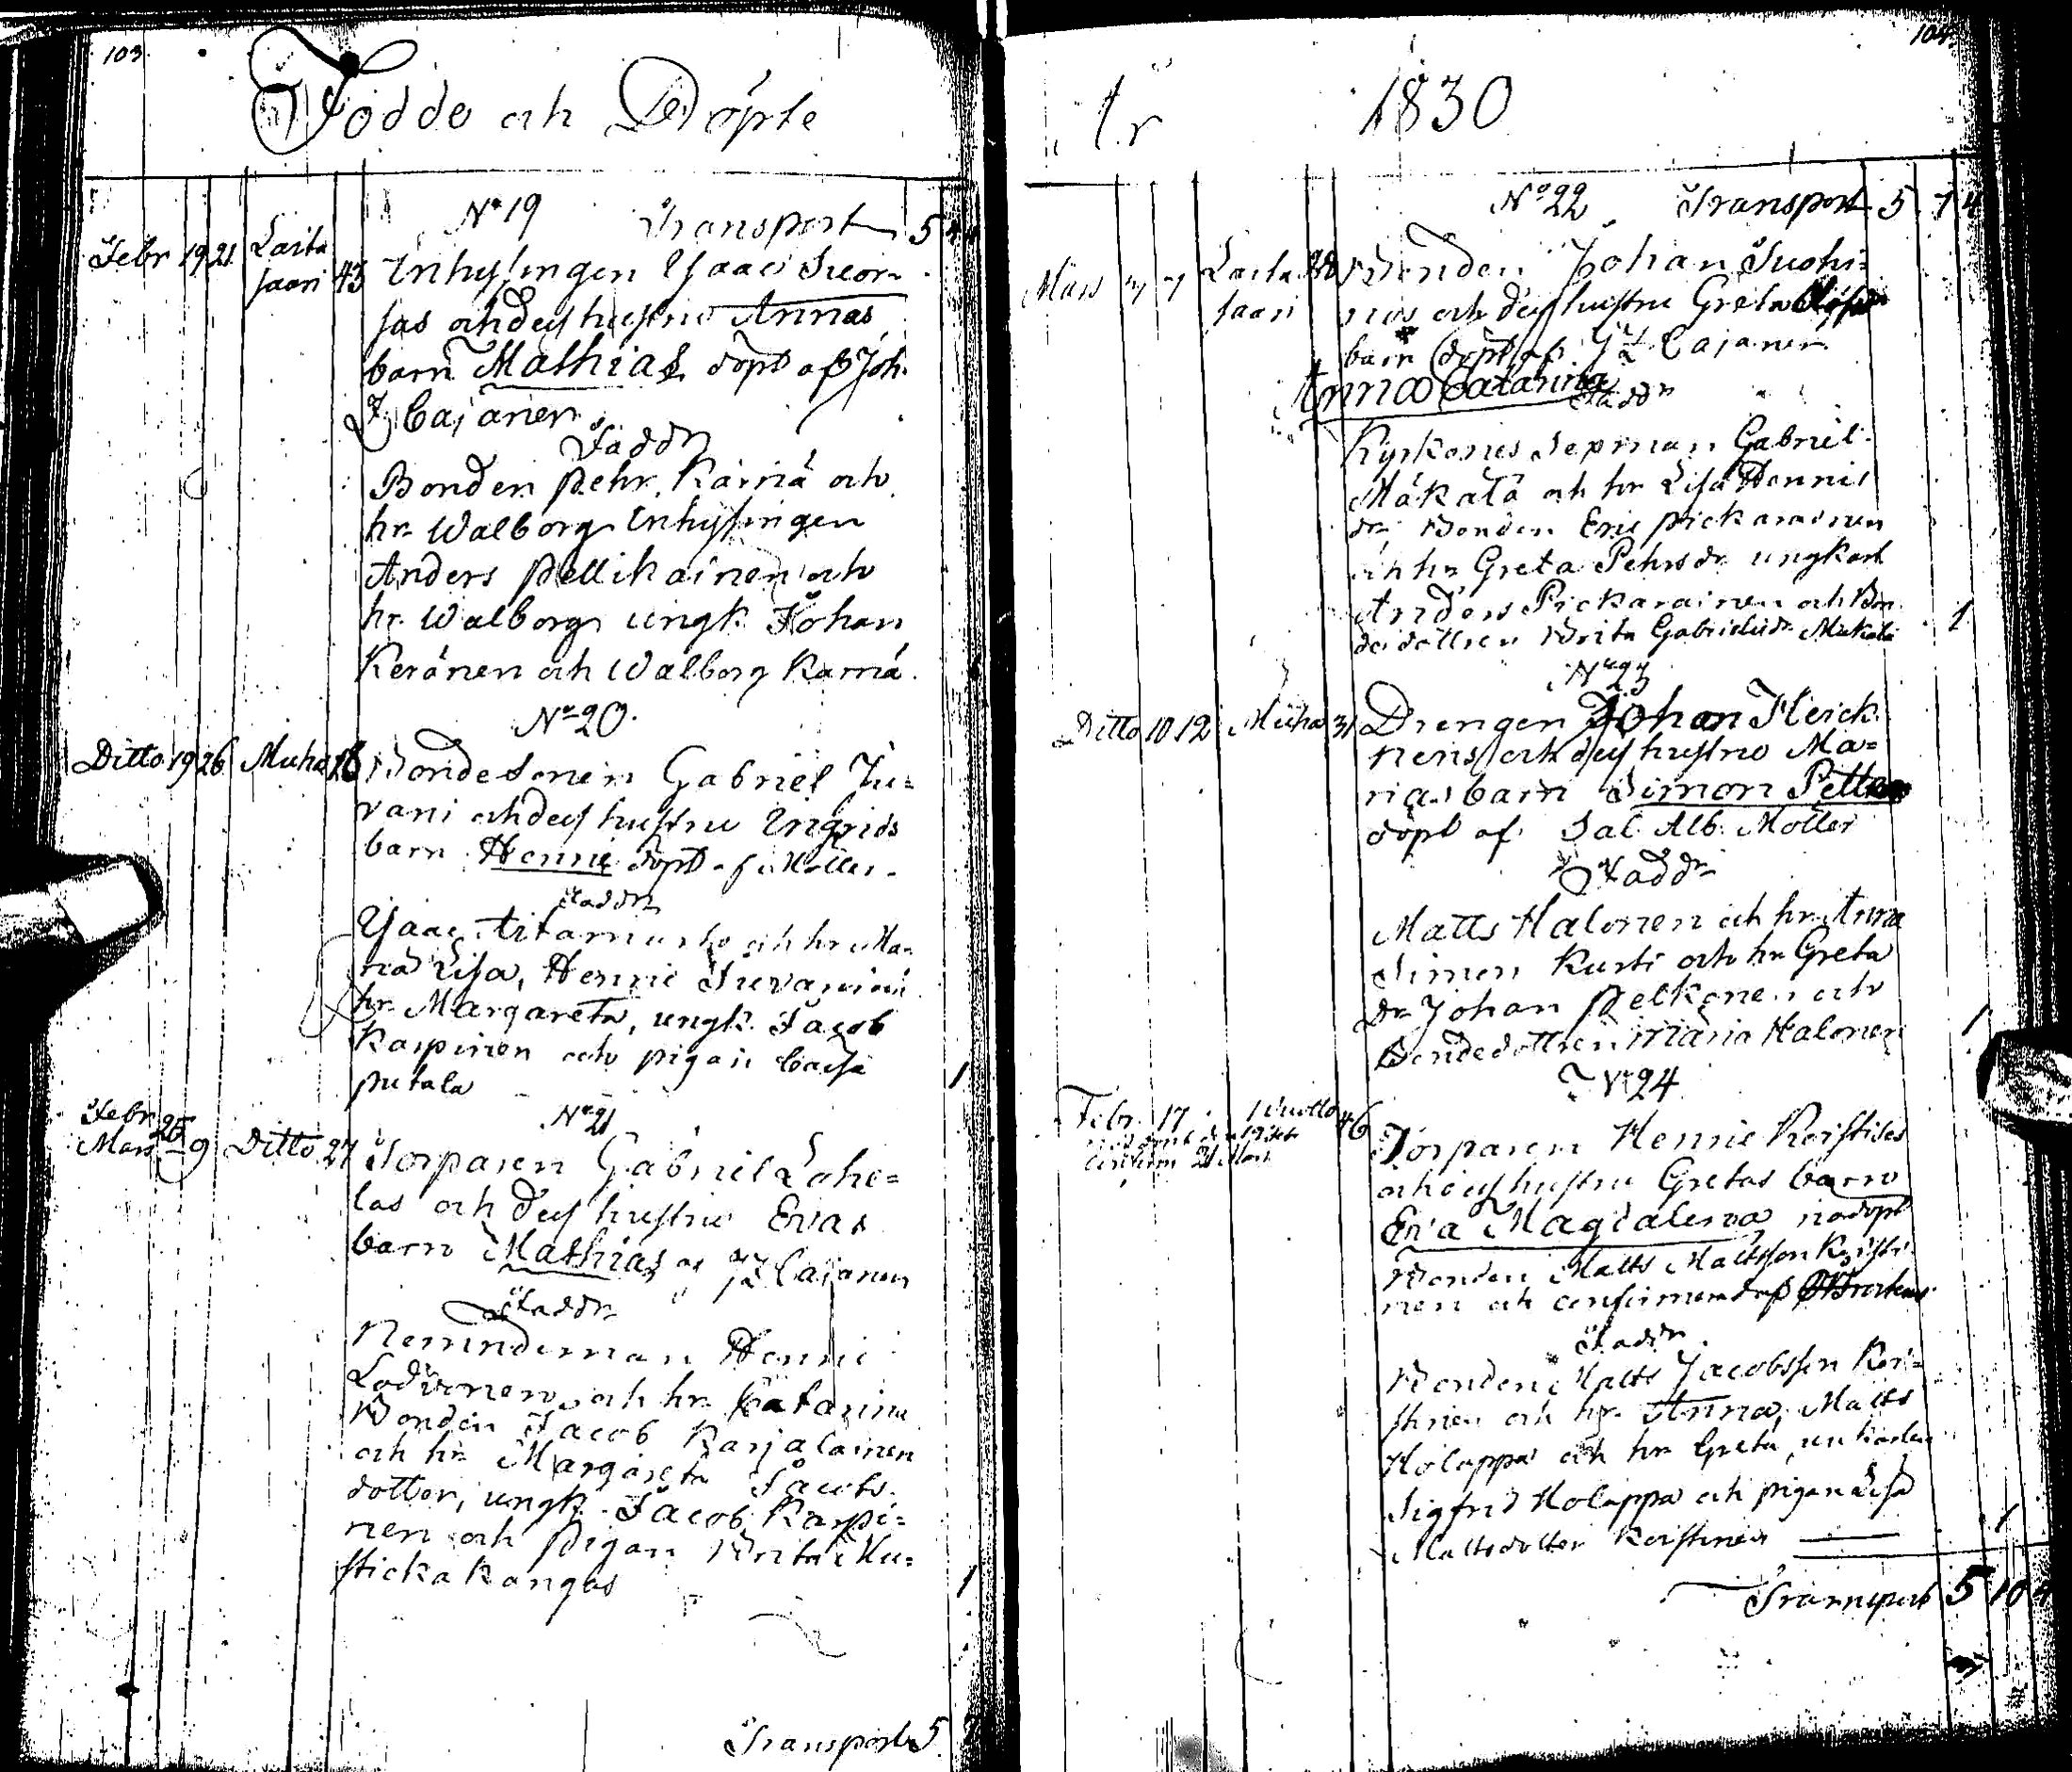 103.
Födde och Döpte
No 19 Transport 5
Febr 19 21 Laita
saari 43 Inhysingen Isaac
sas och dess hustru Annas
barn Mathias döpt af Joh.
Fr Cajanen
Faddr
Bonden Pehr Kärnä och
hr Walborg Inhysingen
Anders Pellikainen och
hr. Walborg ungk. Johan
Keränen och Walborg Karnä.
No 20.
Ditto 19 26 Muhos Bondesonen Gabriel Ju=
vani och dess hustru Ingrids
barn Henric döpt af Möller.
Faddr
Isaac och hr Ma=
ria Lisa, Henric
hr Margareta, ungk. Jacob
Karpinen och pigan Caisa
putala 1
No 21
Febr 25
Mars 9 Ditto 27 Torparen Gabriel Lohe=
las och dess hustru Evas
barn Mathias af Cajanen
Faddr
Nemndeman Henric
och hr. Catarina
Bonden Jacob Karjalainen
och hr Margareta Jacobs
dotter, ungk. Jacob Karpi=
nen och Pigan Brita Mu=
stickakangas 1
Transport 5 7
104.
År 1830
No 22 Transport 5 7 4
Mars 7 Laita
saari Bonden Johan Suohi=
nos och dess hustru Greta
barn döpt af Cajanen
Anna Catarina
Faddr
Kyrkones Sexman Gabriel
Mäkälä och hr Lisa Henrics
dr Bonden Eric Pickarainen
och hr Greta Pehrsdr ungkarl
Anders Pickarainen och Bon
dedottren Brita Gabrielsdr Mäkälä 1
No 23
Ditto 10 12 Muhos 31 Drengen Johan Heick
nens och dess hustru Ma=
rias barn Simon Petter
döpt af Sal. Alb. Möller
Faddr
Matts Halonen och hr Anna
Simon Kurti och hr Greta
Dr Johan Pelkonen och
Bondedottren Maria Halonen 1
No 24
Febr. 17 46 Torparen Henric Keistises
och dess hustru Gretas barn
Eva Magdalena nöddöpt
Bonden Matts Mattsson Keisti
nen och confirmerad af
Faddr.
Bonden Matts Jacobsson Kei=
stinen och hr. Anna, Matts
Holappa och hr Greta, unkarlen
Sigfrid Holappa och pigan Lisa
Mattsdotter Keistinen 1
Transport 5 10 4